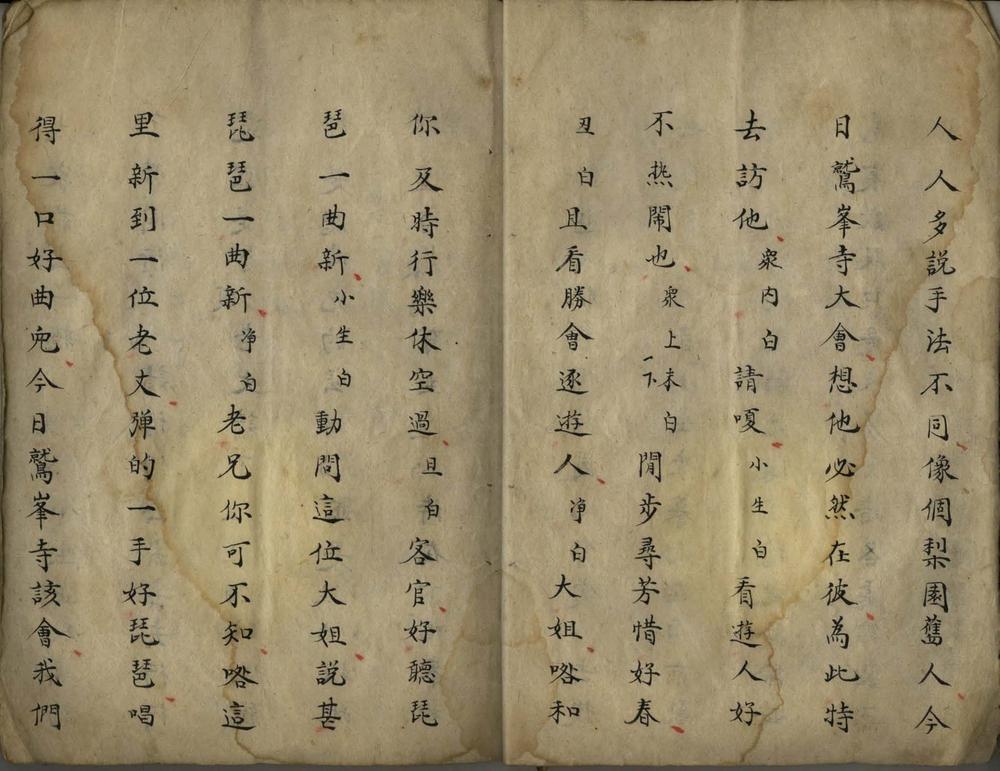 人人多説手法不同像個梨園舊人今
日鷲峯寺大會想他必然在彼為此特
去訪他衆内白請嗄小生白看遊人好
不熱鬧也衆上下末白閒步尋芳惜好春
丑白且看勝會逐遊人净白大姐咯和
你及時行樂休空過旦白客官好聽琵
琶一曲新小生白動問這位大姐說甚
琵琶一曲新净白老兄你可不知咯這
里新到一位老丈彈的一手好琵琶唱
得一口好曲兜今日鷲峯寺該會我們